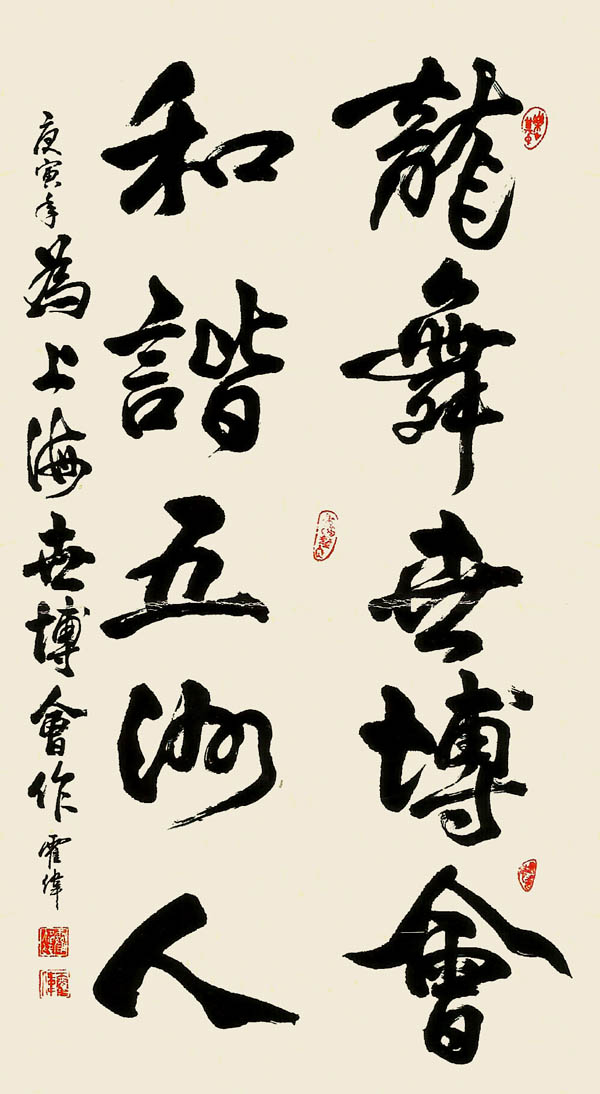 龍舞世博會
和諧五洲人
庚寅年為上海世博會作霍偉